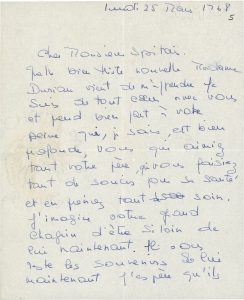 Lundi 25 Mars 1968
Cher Monsieur
Quelle bien triste nouvelle Madame
vient de m'apprendre. Je
suis de tout cœur avec vous
et prend bien part à votre
peine que, je sais, est bien
profonde, vous qui aimiez
tant votre père, qui vous faisiez
tant de soucis pour sa santé
et en preniez tant soin.
J'imagine votre grand
chagrin d'être si loin de
lui maintenant. Il vous
reste les souvenirs de lui
maintenant j'espère qu'ils